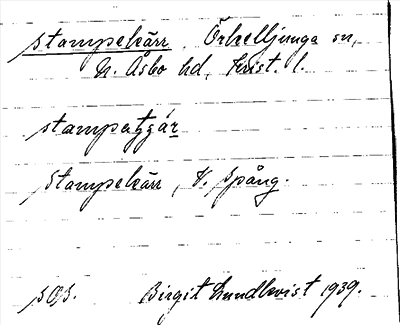 Stampekärr, Örkelljunga sn,
N. Åsbo hd, Krist. l.
Stampekärr, V. Spång.
Birgit Lundkvist 1939.